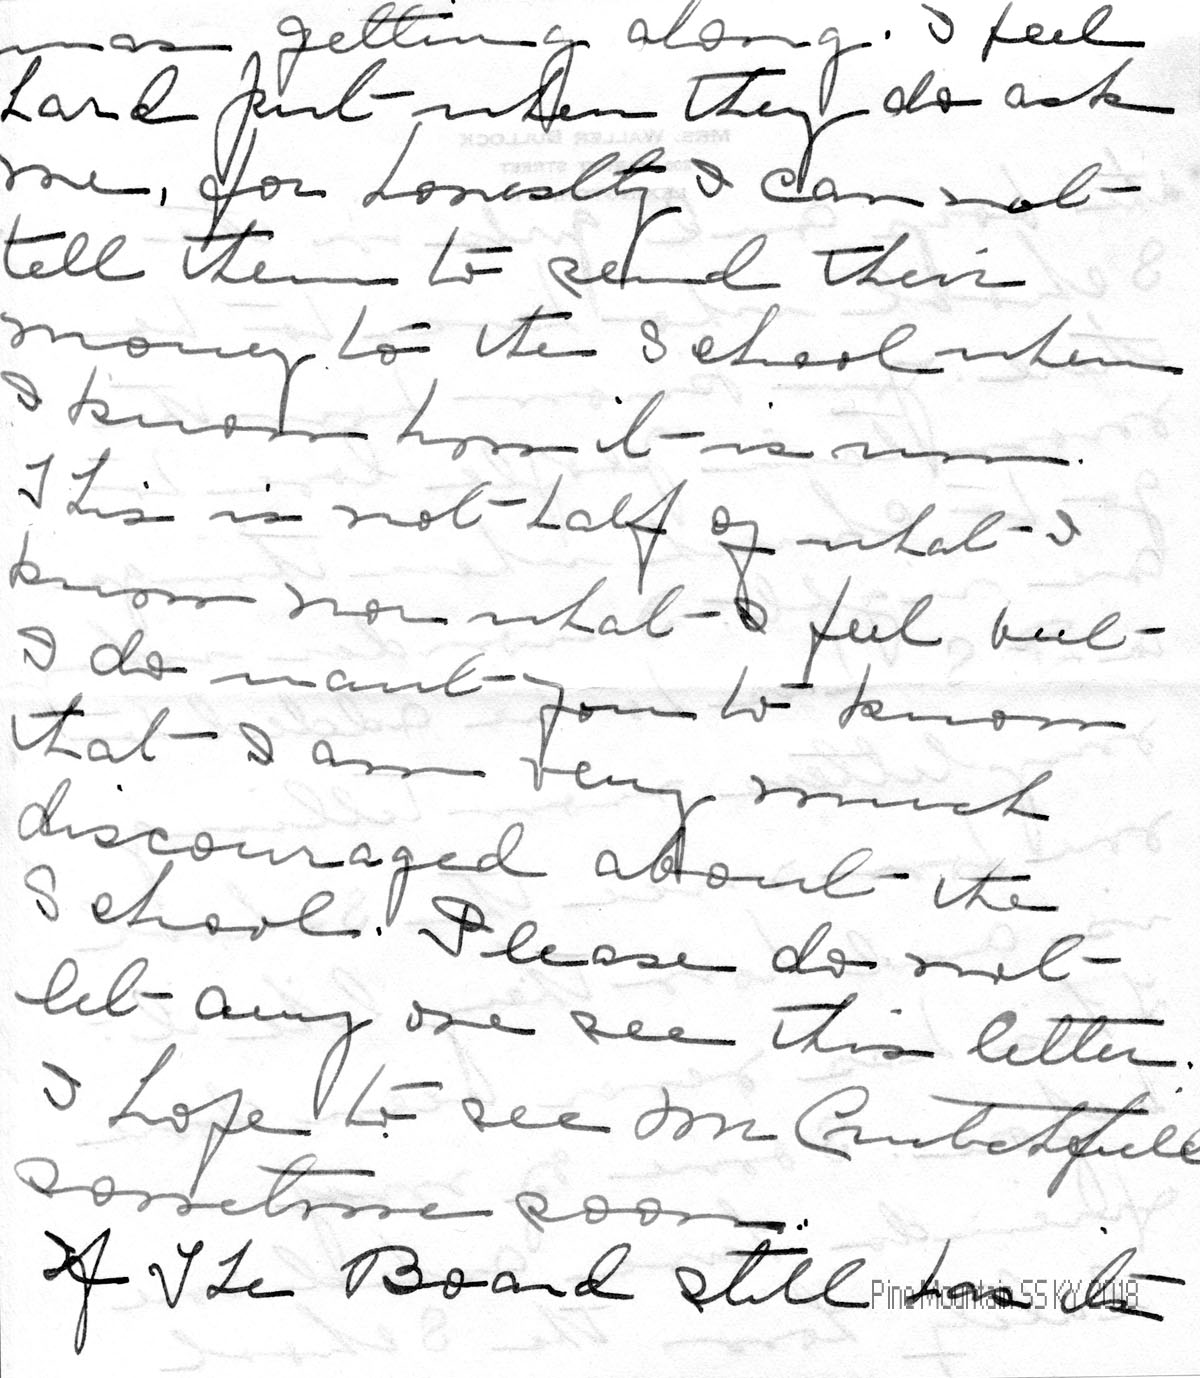 was getting along. I feel
hard put when they do ask
me, for honestly I can not
tell them to send their
money to the School when
I know how it is run.
This is not half of what I
know nor what I feel but
I do want you to know
that I am very much
discouraged about the
School. Please do not
let any one see this letter.
I hope to see Mr Crutchfield
sometime soon.
If The Board still has its
Pine Mountain SS KY 2018
MRS. WALLER BULLOCK
STREET